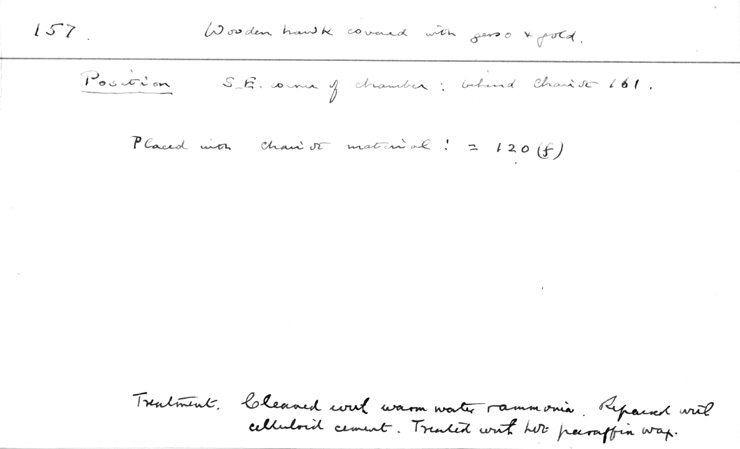 157. Wooden hawk covered with gesso & gold.
Position S.E. corner of chamber: behind chariot 161.
Placed with chariot material: = 120(f)
Treatment. Cleaned with warm water & ammonia. Repaired with
celluloid cement. Treated with hot paraffin wax.